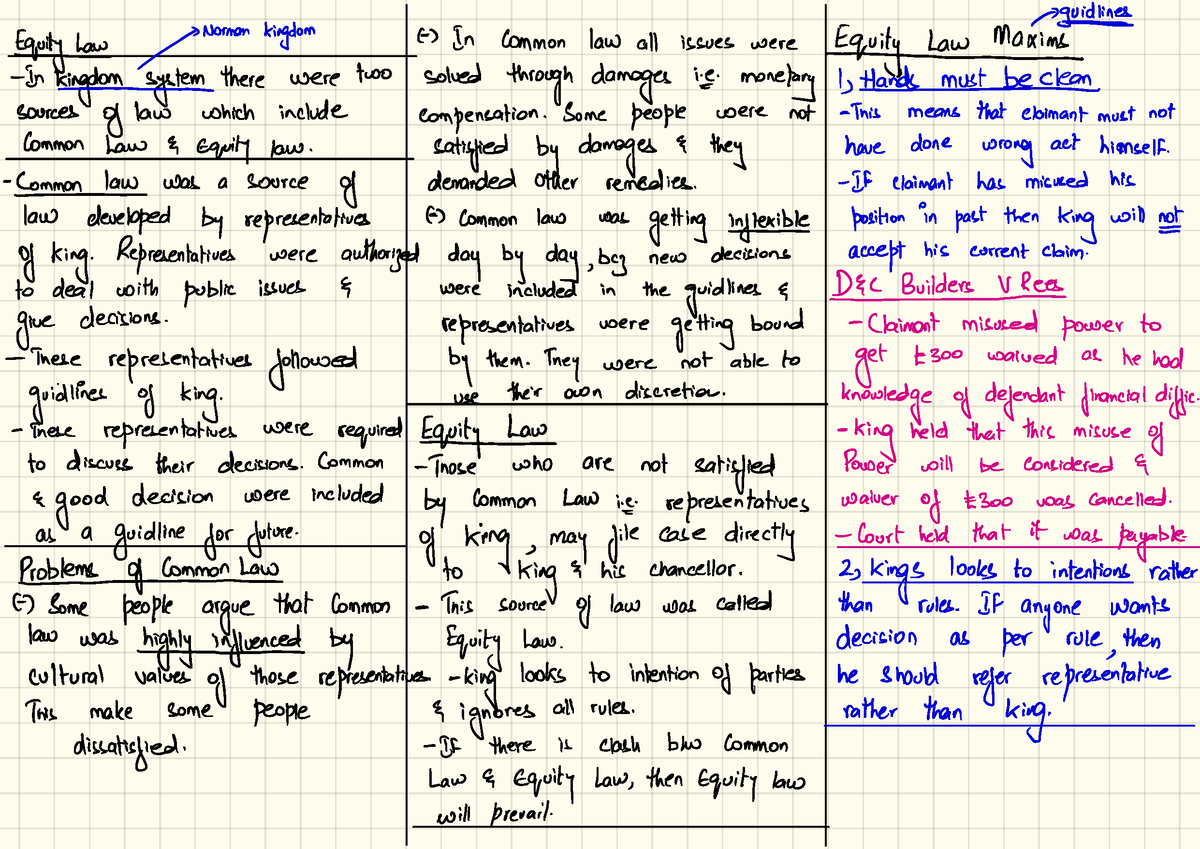 Equity Law
→ Norman kingdom
-In kingdom system there were two
sources of law which include
Common Law & Equity law.
- Common law was a source of
law developed by representatives
of king. Representatives were authorized
to deal with public issues &
give decisions.
- These representatives followed
guidlines of king.
- These representatives were required
to discuss their decisions. Common
& good decision were included
as a guidline for future.
Problems of Common Law
(-) Some people argue that Common
law was highly influenced by
cultural values of those representatives
This make some people
dissatisfied.
(-) In Common law all issues were
solved through damages i.e. monetary
compensation. Some people were not
satisfied by damages & they
demanded other remedies.
(-) Common law was getting inflexible
day by day, bcz new decisions
were included in the guidlines &
representatives were getting bound
by them. They were not able to
use their own discretion.
Equity Law
- Those who are not satisfied
by Common Law i.e. representatives
of king, may file case directly
to king & his chancellor.
- This source of law was called
Equity Law.
- king looks to intention of parties
& ignores all rules.
- If there is clash b/w Common
Law & Equity Law, then Equity law
will prevail.
→ guidlines
Equity Law Maxims
1, Hands must be clean
- This means that claimant must not
have done wrong act himself.
- If claimant has misused his
position in past then King will not
accept his current claim.
D&C Builders V Rees
- Claimant misused power to
get £300 waived as he had
knowledge of defendant financial diffic.
- king held that this misuse of
Power will be considered &
waiver of £300 was cancelled.
- Court held that it was payable.
2, kings looks to intentions rather
than rules. If anyone wants
decision as per rule, then
he should refer representative
rather than king.